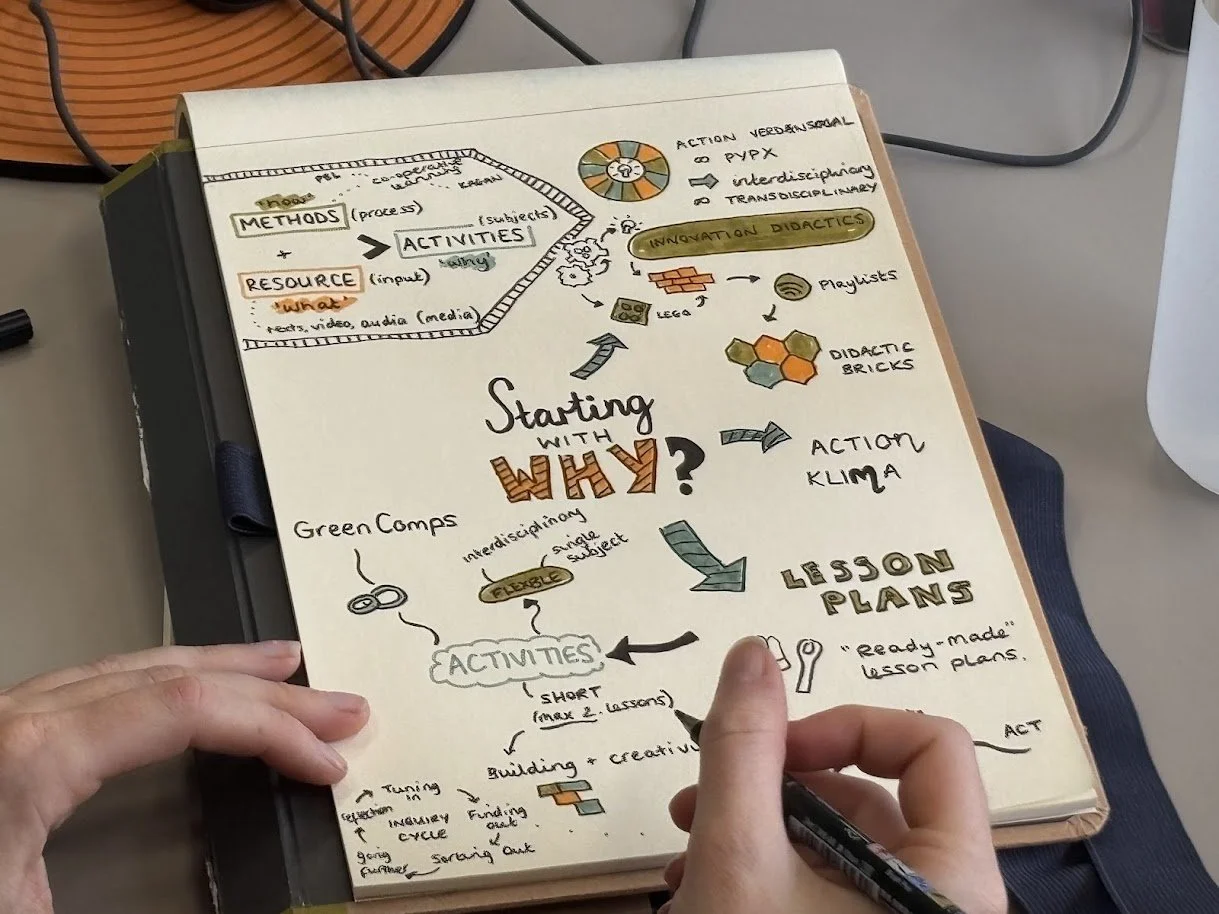 PBL
co-operative
learning
KAGAN
"how"
METHODS (process)
+
> ACTIVITIES
(subjects)
"why"
RESOURCE (input)
"what"
texts, video, audia (media)
ACTION
PYPX
interdisciplinary
TRANSDISCIPLINARY
INNOVATION DIDACTICS
LEGO
Playlists
DIDACTIC
BRICKS
Starting
WITH
WHY?
ACTION
KLIMA
Green Comps
interdisciplinary
single
subject
FLEXIBLE
ACTIVITIES
SHORT
(max 2 lessons)
Building + creativ
LESSON
PLANS
"Ready-made"
lesson plans.
ACT
Tuning
in
Funding
out
Sorting out
going
further
reflection
INQUIRY
CYCLE